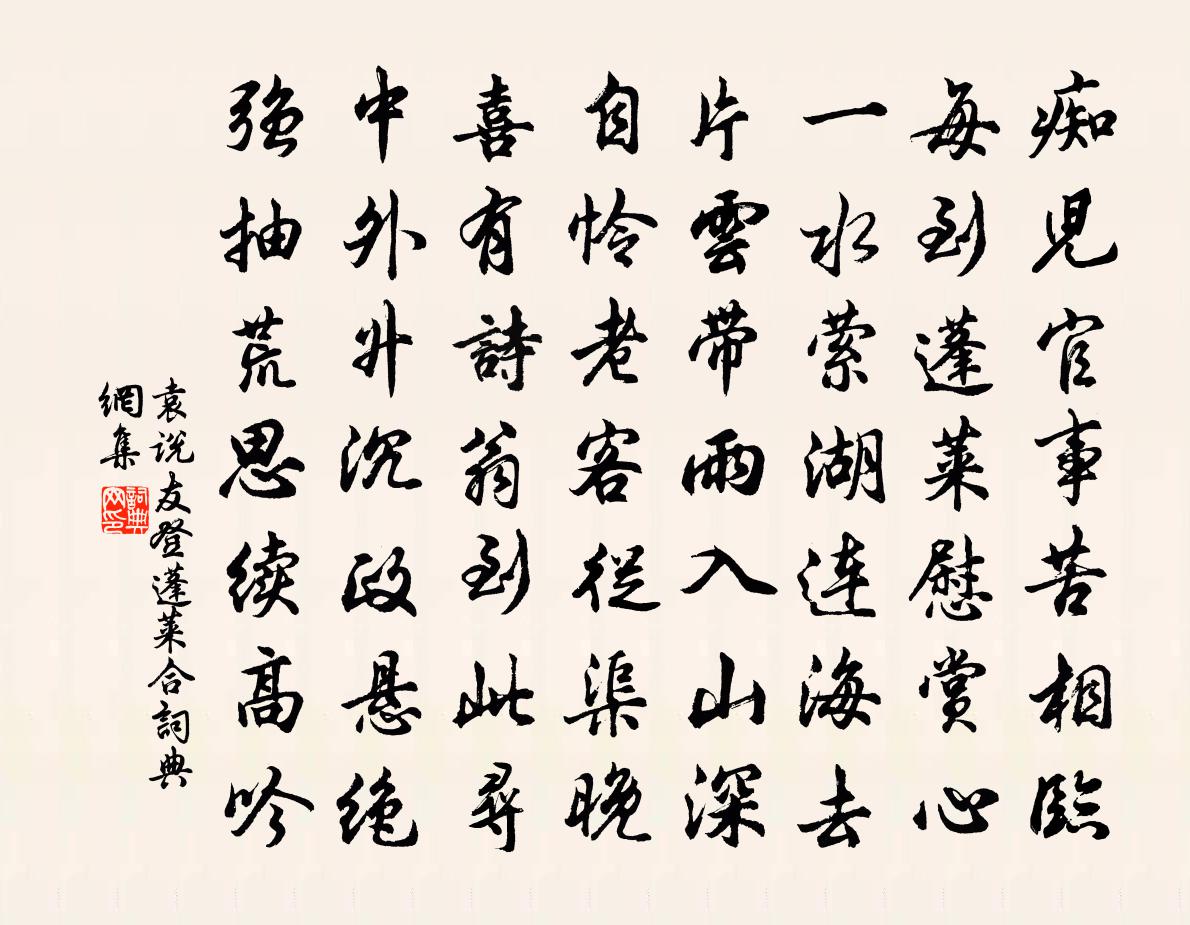 痴児官事苦相臨
每到蓬萊慰賞心
一水萦湖連海去
片雲帶雨入山深
自怜老客從渠晚
喜有詩翁到此尋
中外升沉政悬绝
強抽荒思续高吟
袁说友登蓬萊合詞典
網集
詞典
网印